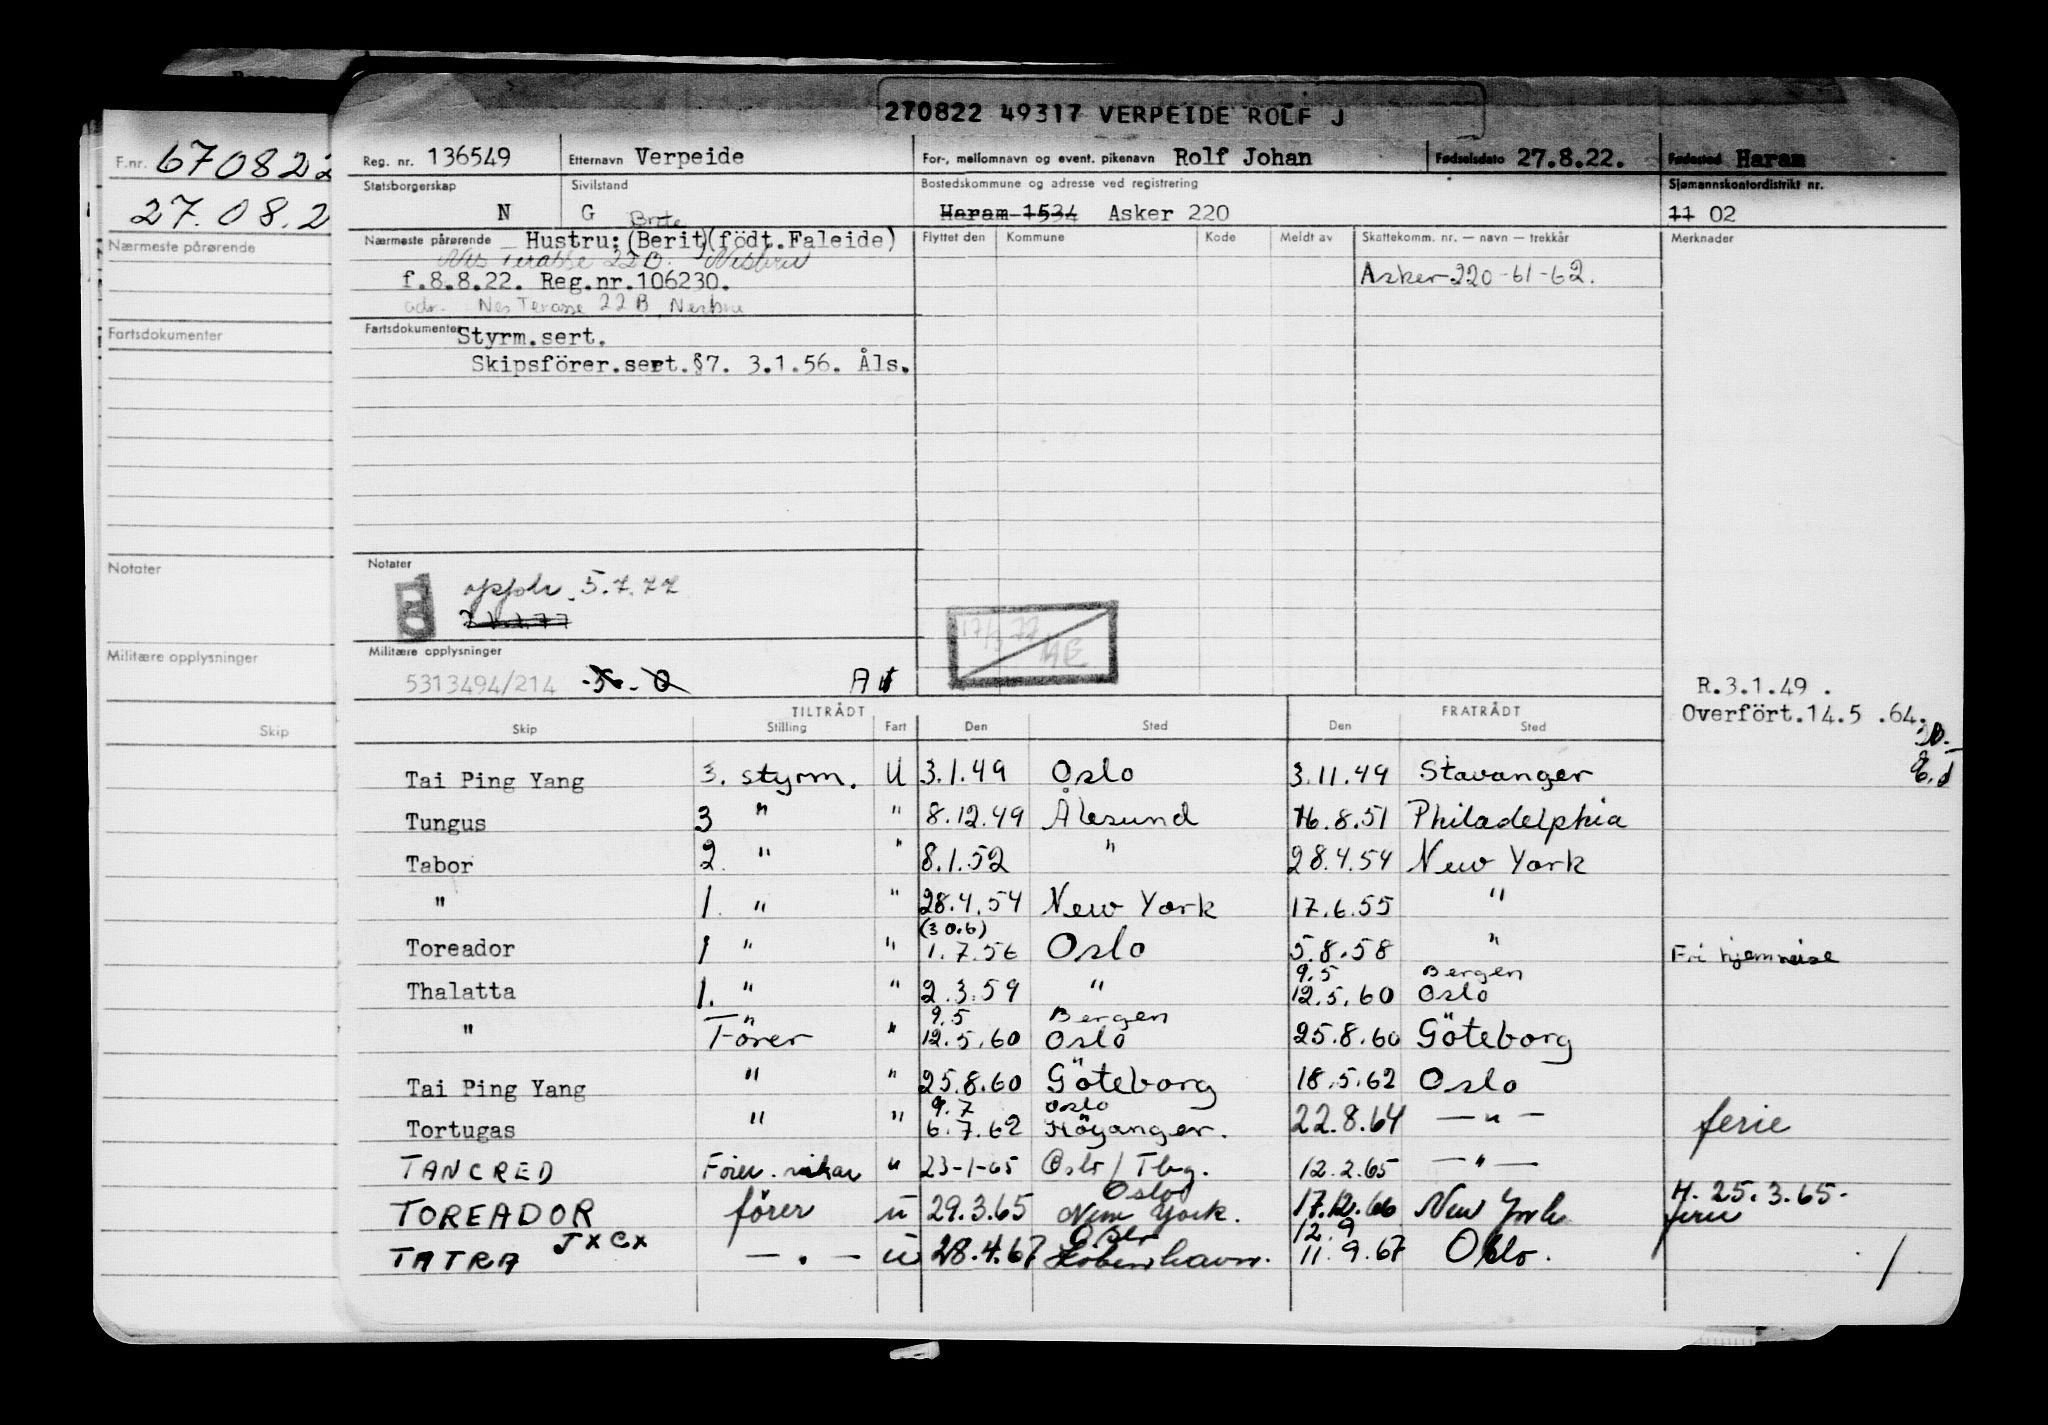 270822 49317 VERPEIDE ROLF J
F.nr. 670822
27.08.2
Nærmeste pårørende
Fartsdokumenter
Notater
Militære opplysninger
Skip
Reg. nr. 136549 Etternavn Verpeide For-, mellomnavn og event. pikenavn Rolf Johan Fødselsdato 27.8.22. Fødested Haram
Statsborgerskap N Sivilstand G Bostedskommune og adresse ved registrering Haram 1534 Asker 220 Sjømannskontordistrikt nr. 11 02
Nærmeste pårørende Hustru: (Berit) (födt.Faleide)
Nes terasse 22B. Nesbru
f.8.8.22. Reg.nr.106230.
adr. Nes Terasse 22B Nesbru
Flyttet den Kommune Kode Meldt av Skattekomm. nr. — navn — trekkår Merknader
Asker-220-61-62.
Fartsdokumenter Styrm.sert.
Skipsförer.sert.§7. 3.1.56. Åls.
Notater
5.7.77
17/ 77
Militære opplysninger
5313494/214
R.3.1.49 .
Overfört.14.5 .64.
TILTRÅDT FRATRÅDT
Skip Stilling Fart Den Sted Den Sted
Tai Ping Yang 3. styrm. U 3.1.49 Oslo 3.11.49 Stavanger
Tungus 3 " " 8.12.49 Ålesund 16.8.51 Philadelphia
Tabor 2. " " 8.1.52 " 28.4.54 New York
" 1. " " 28.4.54 New York 17.6.55 "
(30.6)
Toreador 1 " " 1.7.56 Oslo 5.8.58 " Fri hjemreise
9.5 Bergen
Thalatta 1. " " 2.3.59 " 12.5.60 Oslo
9.5 Bergen
" Förer " 12.5.60 Oslo 25.8.60 Göteborg
Tai Ping Yang " " 25.8.60 Göteborg 18.5.62 Oslo
9.7 Oslo
Tortugas " " 6.7.62 Höyanger. 22.8.64 — " — ferie
TANCRED Förer. vikar " 23-1-65 Oslo / Tbg. 12.2.65 — " —
Oslo H. 25.3.65.
TOREADOR förer u 29.3.65 New York. 17.12.66 New York ferie
JxCx Oslo 12.9
TATRA — " — u 28.4.67 København. 11.9.67 Oslo.